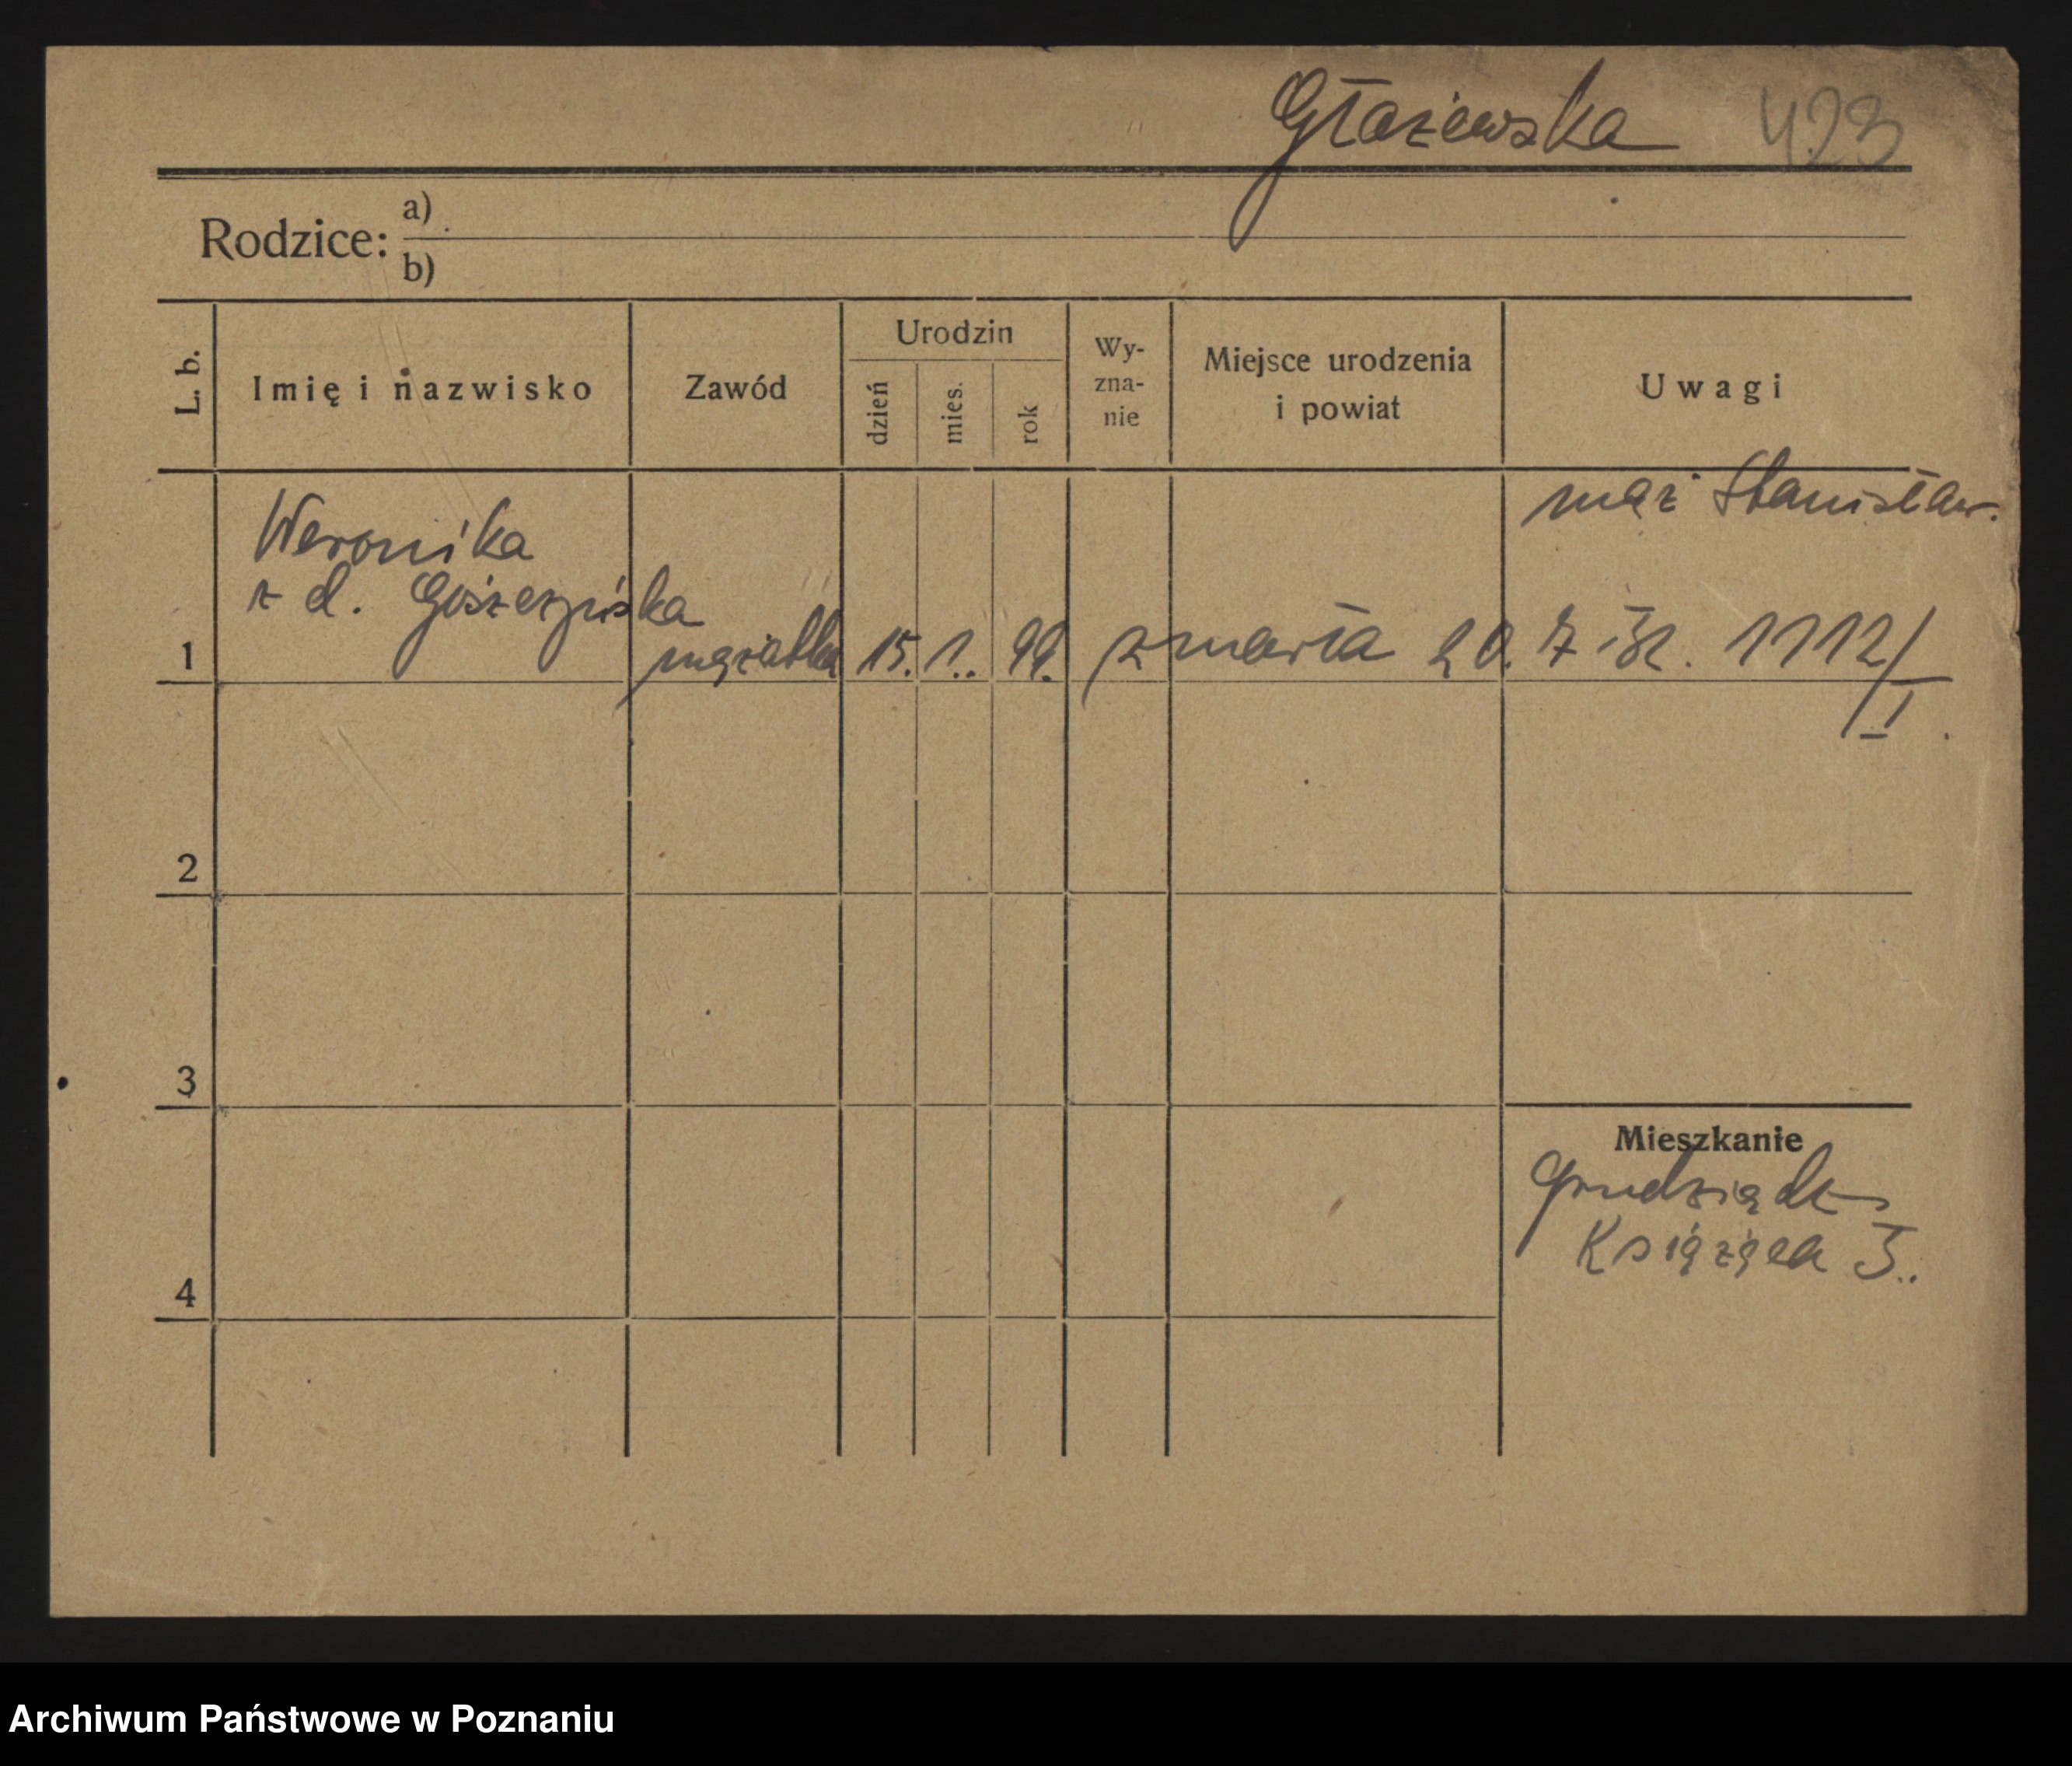 Głażewska 423
Rodzice:
a)
b)
L. b.
Imię i nazwisko
Zawód
Urodzin
dzień
mies.
rok
Wy-
zna-
nie
Miejsce urodzenia
i powiat
Uwagi
mąż Stanisław.
Weronika
z d.
1 mężatka 15. 1. 99. zmarła 20. 7 1112/I
2
3
4
Mieszkanie
Grudziądz
Książęca 3.
Archiwum Państwowe w Poznaniu